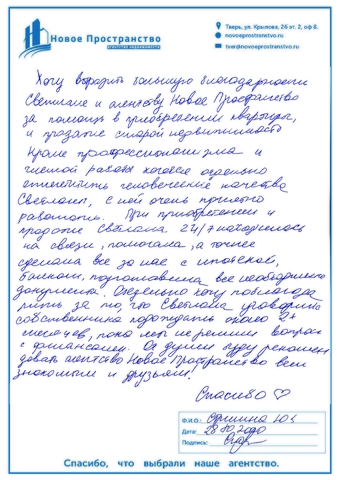 Новое Пространство
агентство недвижимости
Тверь, ул. Крылова, 26 эт. 2, оф 8.
novoeprostranstvo.ru
tver@novoeprostranstvo.ru
Хочу выразить большую благодарность
Светлане и агентству Новое Пространство
за помощь в приобретении квартиры,
и продаже старой недвижимости
Кроме профессионализма и
чистой работы хочется отдельно
отметить человеческие качества
Светланы, с ней очень приятно
работать. При приобретении и
продаже Светлана 24/7 находилась
на связи, помогала, а точнее
сделала все за нас с ипотекой,
банком, подготовила все необходимые
документы. Отдельно хочу поблагода
рить за то, что Светлана уговорила
собственника подождать около 2х
месяцев, пока мы не решили вопрос
с финансами. От души буду рекомен
довать агентство Новое Пространство всем
знакомым и друзьям!
Спасибо ♡
Ф.И.О.: Ю.
Дата: 28.10.2020
Подпись:
Спасибо, что выбрали наше агентство.